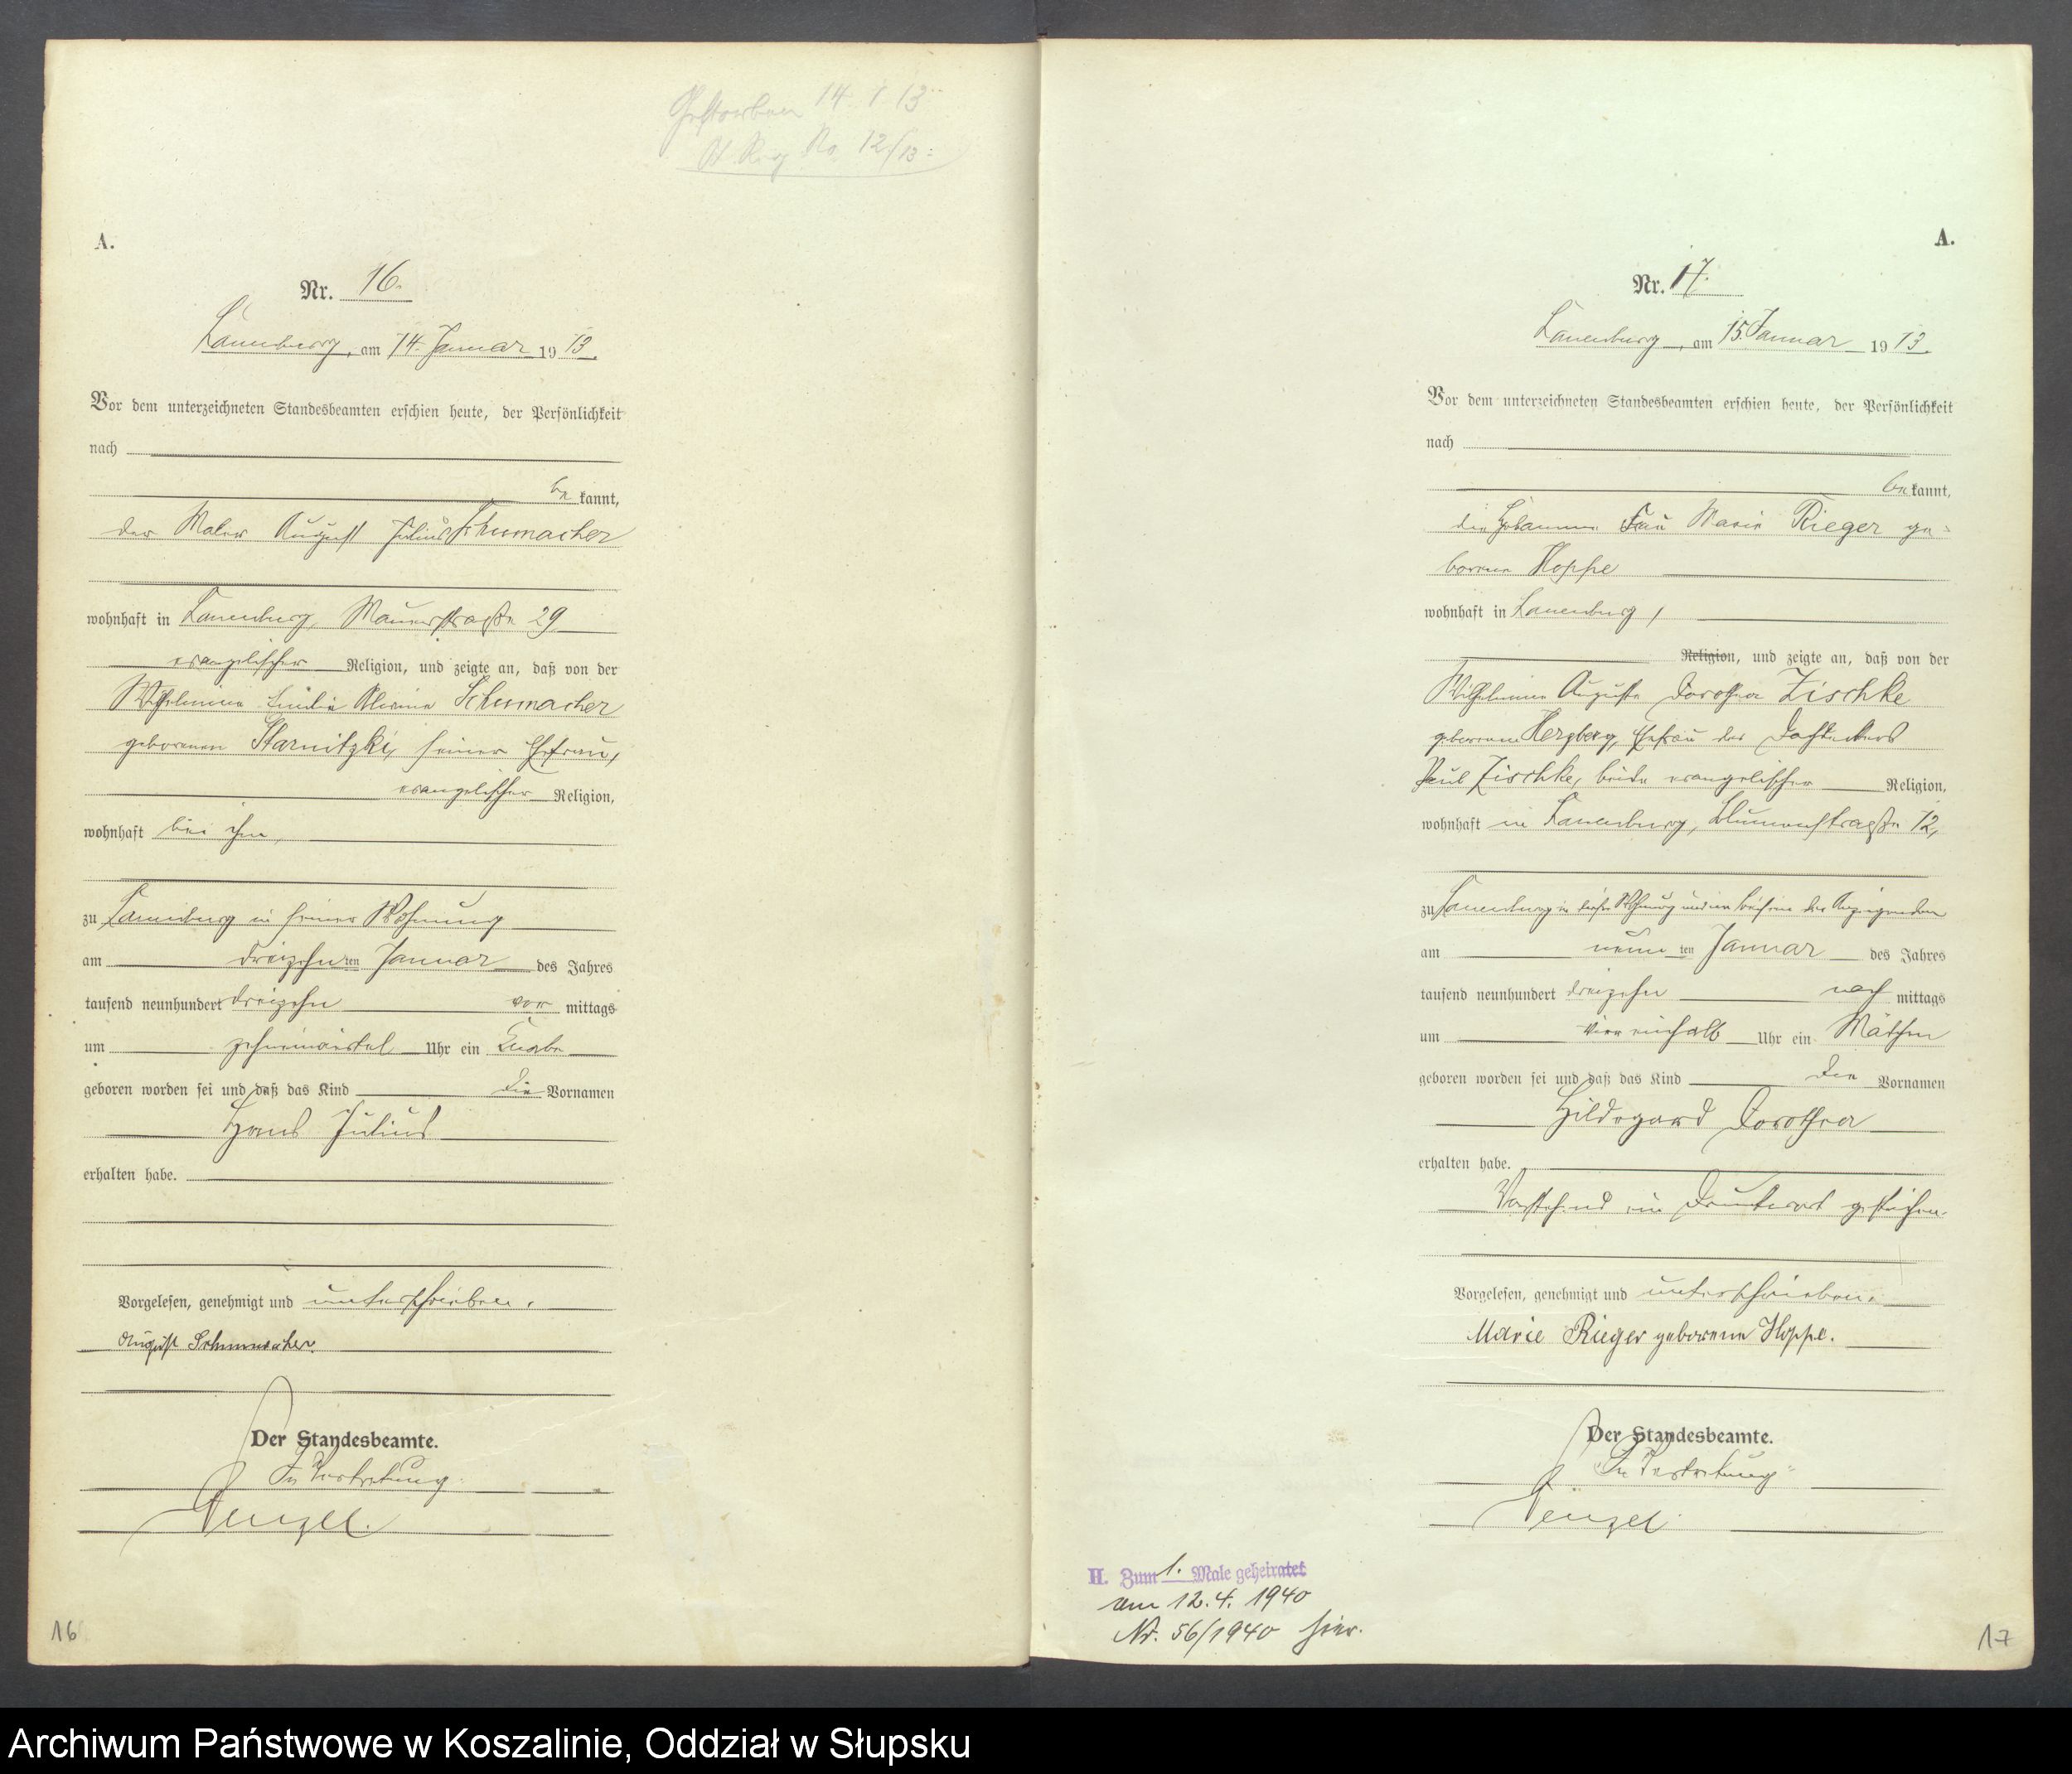 Gestorben 14. 1. 13
St. Reg No. 12/13.
A.
Nr. 16.
Lauenburg, am 14. Januar 1913.
Vor dem unterzeichneten Standesbeamten erschien heute, der Persönlichkeit
nach
be kannt,
der Maler August Julius Schumacher
wohnhaft in Lauenburg, Mauerstraße 29
evangelischer Religion, und zeigte an, daß von der
Wilhelmine Emilie Schumacher
geborenen Starnitzki, seiner Ehefrau,
evangelischer Religion,
wohnhaft bei ihm,
zu Lauenburg in seiner Wohnung
am dreizehnten Januar des Jahres
tausend neunhundert dreizehn vor mittags
um zehneinviertel Uhr ein Knabe
geboren worden sei und daß das Kind die Vornamen
Hans Julius
erhalten habe.
Vorgelesen, genehmigt und unterschrieben.
August Schumacher.
Der Standesbeamte.
In Vertretung.
Wenzel.
16
A.
Nr. 17.
Lauenburg, am 15. Januar 1913.
Vor dem unterzeichneten Standesbeamten erschien heute, der Persönlichkeit
nach
be kannt,
die Hebamme Frau Marie Rieger ge-
borene Hoppe
wohnhaft in Lauenburg,
Religion, und zeigte an, daß von der
Wilhelmine Auguste Dorothea Zischke
geborene Herzberg, Ehefrau des Dachdeckers
Paul Zischke, beide evangelischer Religion,
wohnhaft in Lauenburg, Blumenstraße 12,
zu Lauenburg in Wohnung und im Beisein der Anzeigenden
am neunten Januar des Jahres
tausend neunhundert dreizehn nach mittags
um viereinhalb Uhr ein Mädchen
geboren worden sei und daß das Kind die Vornamen
Hildegard Dorothea
erhalten habe.
Vorstehend ein Druckwort gestrichen.
Vorgelesen, genehmigt und unterschrieben.
Marie Rieger geborene Hoppe.
Der Standesbeamte.
In Vertretung
Wenzel.
II. Zum 1. Male geheiratet
am 12. 4. 1940
Nr. 56/1940 hier.
17
Archiwum Państwowe w Koszalinie, Oddział w Słupsku